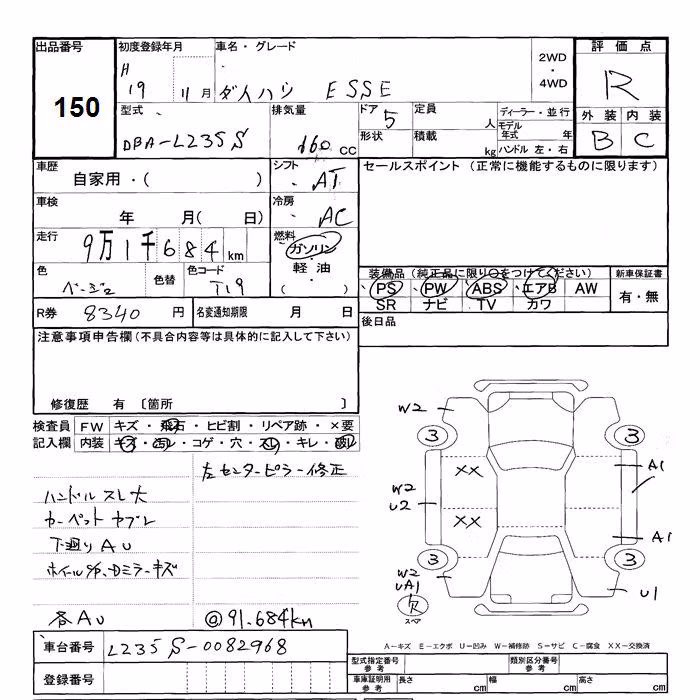 出品番号 初度登録年月 車名・グレード 評価点
150 H 19 11月 ダイハツ ESSE 2WD ・ 4WD R
型式 排気量 ドア 定員 ディーラー・並行 外装 内装
DBA-L235S 660 CC 5 人 モデル年式 年 B C
形状 積載 kg ハンドル 左・右
車歴 シフト セールスポイント (正常に機能するものに限ります)
自家用・( ) AT
車検 冷房
年 月( 日) AC
走行 燃料
9万1千684km ガソリン
・
軽油
色 色替 色コード
ベージュ T19 ( )
装備品 (純正品に限り○をつけてください) 新車保証書
PS PW ABS エアB AW 有・無
SR ナビ TV カワ
R券 8340 円 名変通知期限 月 日 後日品
注意事項申告欄 (不具合内容等は具体的に記入して下さい)
修復歴 有 〔箇所 〕
検査員 FW キズ・飛石・ヒビ割・リペア跡・×要
記入欄 内装 キズ・汚レ・コゲ・穴・スレ・キレ・割レ
左センターピラー修正
ハンドルスレ大
カーペットヤブレ
下廻りAU
各AU @91.684km
W2
3 3
XX A1
W2
U2
XX A1
3 3
W2
UA1 U1
欠
スペア
A-キズ E-エクボ U-凹み W-補修跡 S-サビ C-腐食 XX-交換済
車台番号 L235S-0082968
登録番号
型式指定番号 参考 類別区分番号 参考
車庫証明用 参考 長さ cm 幅 cm 高さ cm